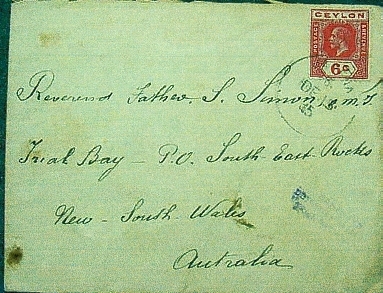 CEYLON
POSTAGE
6c
DE
15
Reverend Father. S. Simon, s.m.J
Trial Bay - P.O. South East Rocks
New - South Wales
Australia